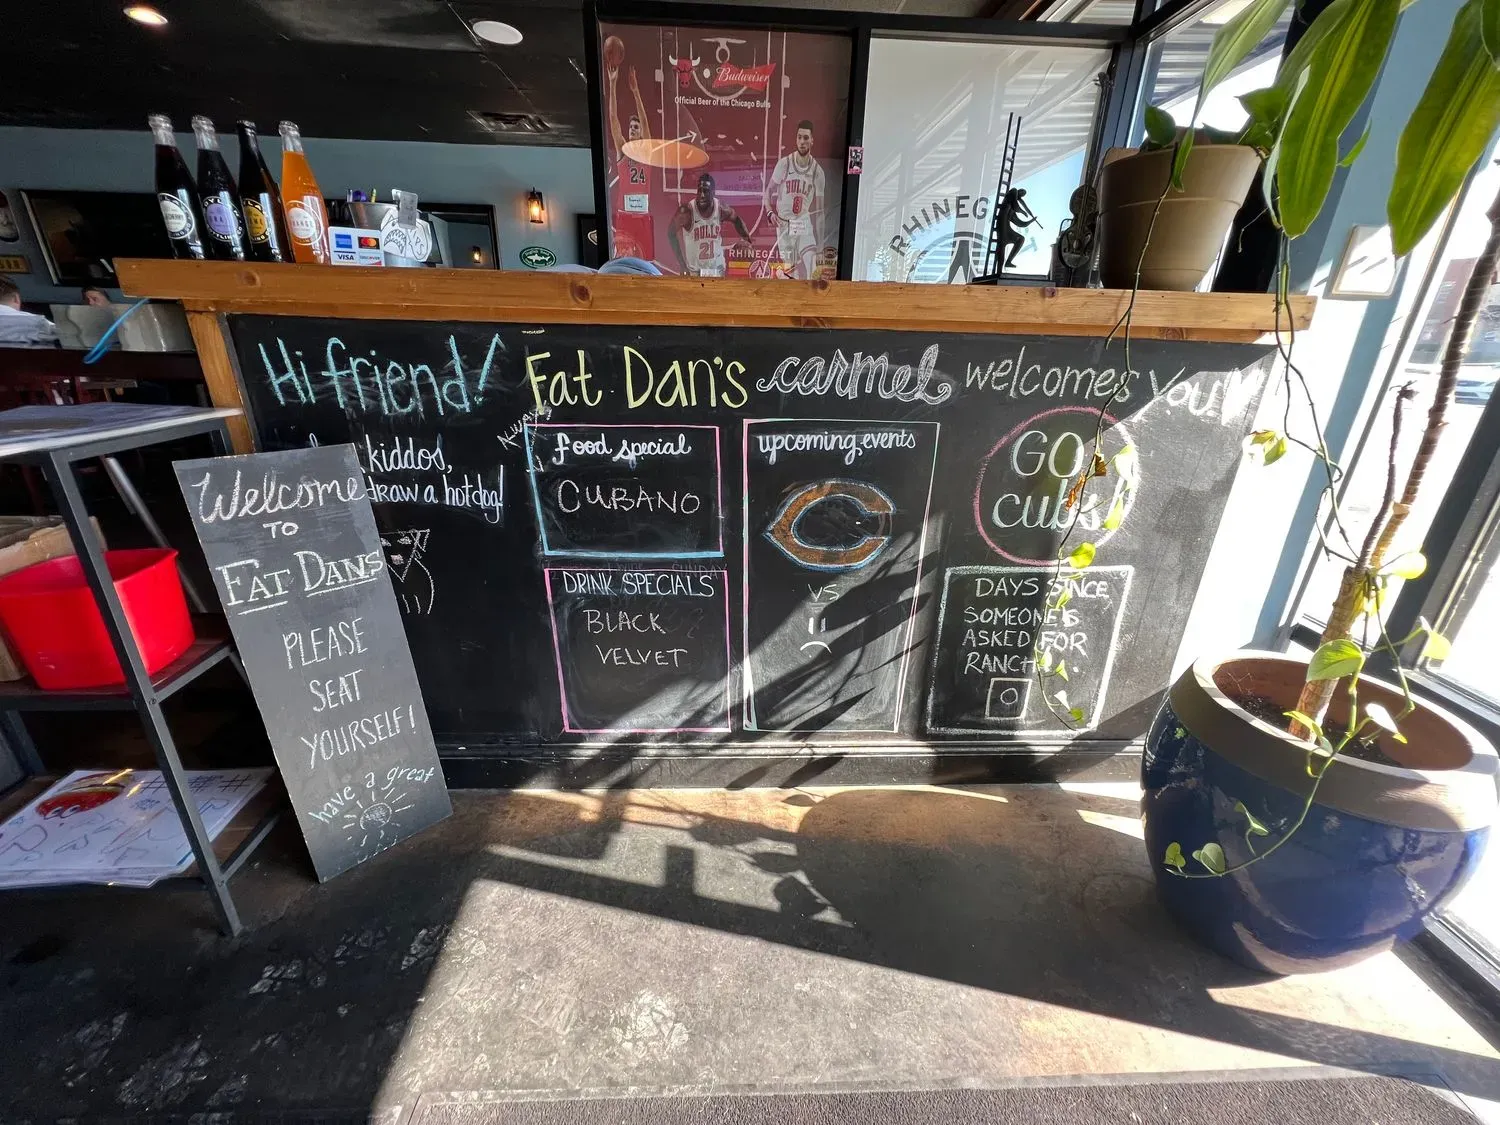 Budweiser
Official Beer of the Chicago Bulls
24
BULLS
21
BULLS
8
RHINEGEIST
RHINEG
VISA
DISCOVER
Hi friend! Fat Dan's carmel welcomes you!
kiddos,
draw a hotdog!
Welcome
TO
FAT DANS
PLEASE
SEAT
YOURSELF!
have a great
food special
CUBANO
DRINK SPECIALS
BLACK
VELVET
upcoming events
C
VS
GO
CUBS
DAYS SINCE
SOMEONE'S
ASKED FOR
RANCH...
0